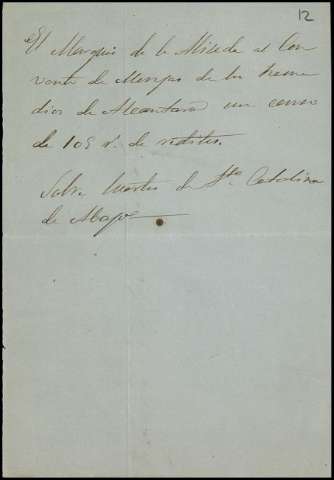 12
El Marques de la Mired al Con
vento de Monjas de los reme
dios de Alcantara un censo
de 105 r.s de reditos.
Sobre de Sta Catalina
de